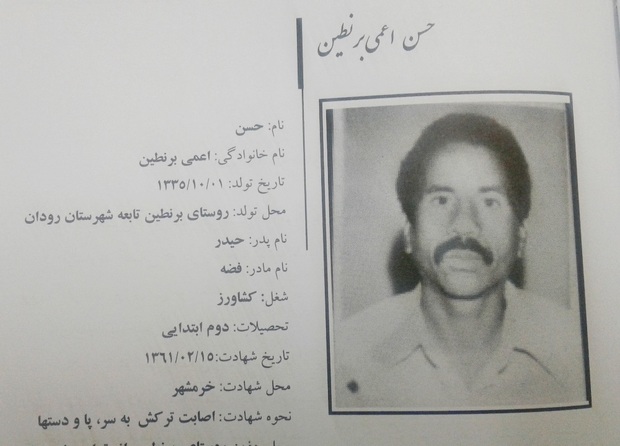 حسن اعمی برنطین
نام: حسن
نام خانوادگی: اعمی برنطین
تاریخ تولد: ۱۳۳۵/۱۰/۰۱
محل تولد: روستای برنطین تابعه شهرستان رودان
نام پدر: حیدر
نام مادر: فضه
شغل: کشاورز
تحصیلات: دوم ابتدایی
تاریخ شهادت: ۱۳۶۱/۰۲/۱۵
محل شهادت: خرمشهر
نحوه شهادت: اصابت ترکش به سر، پا و دستها